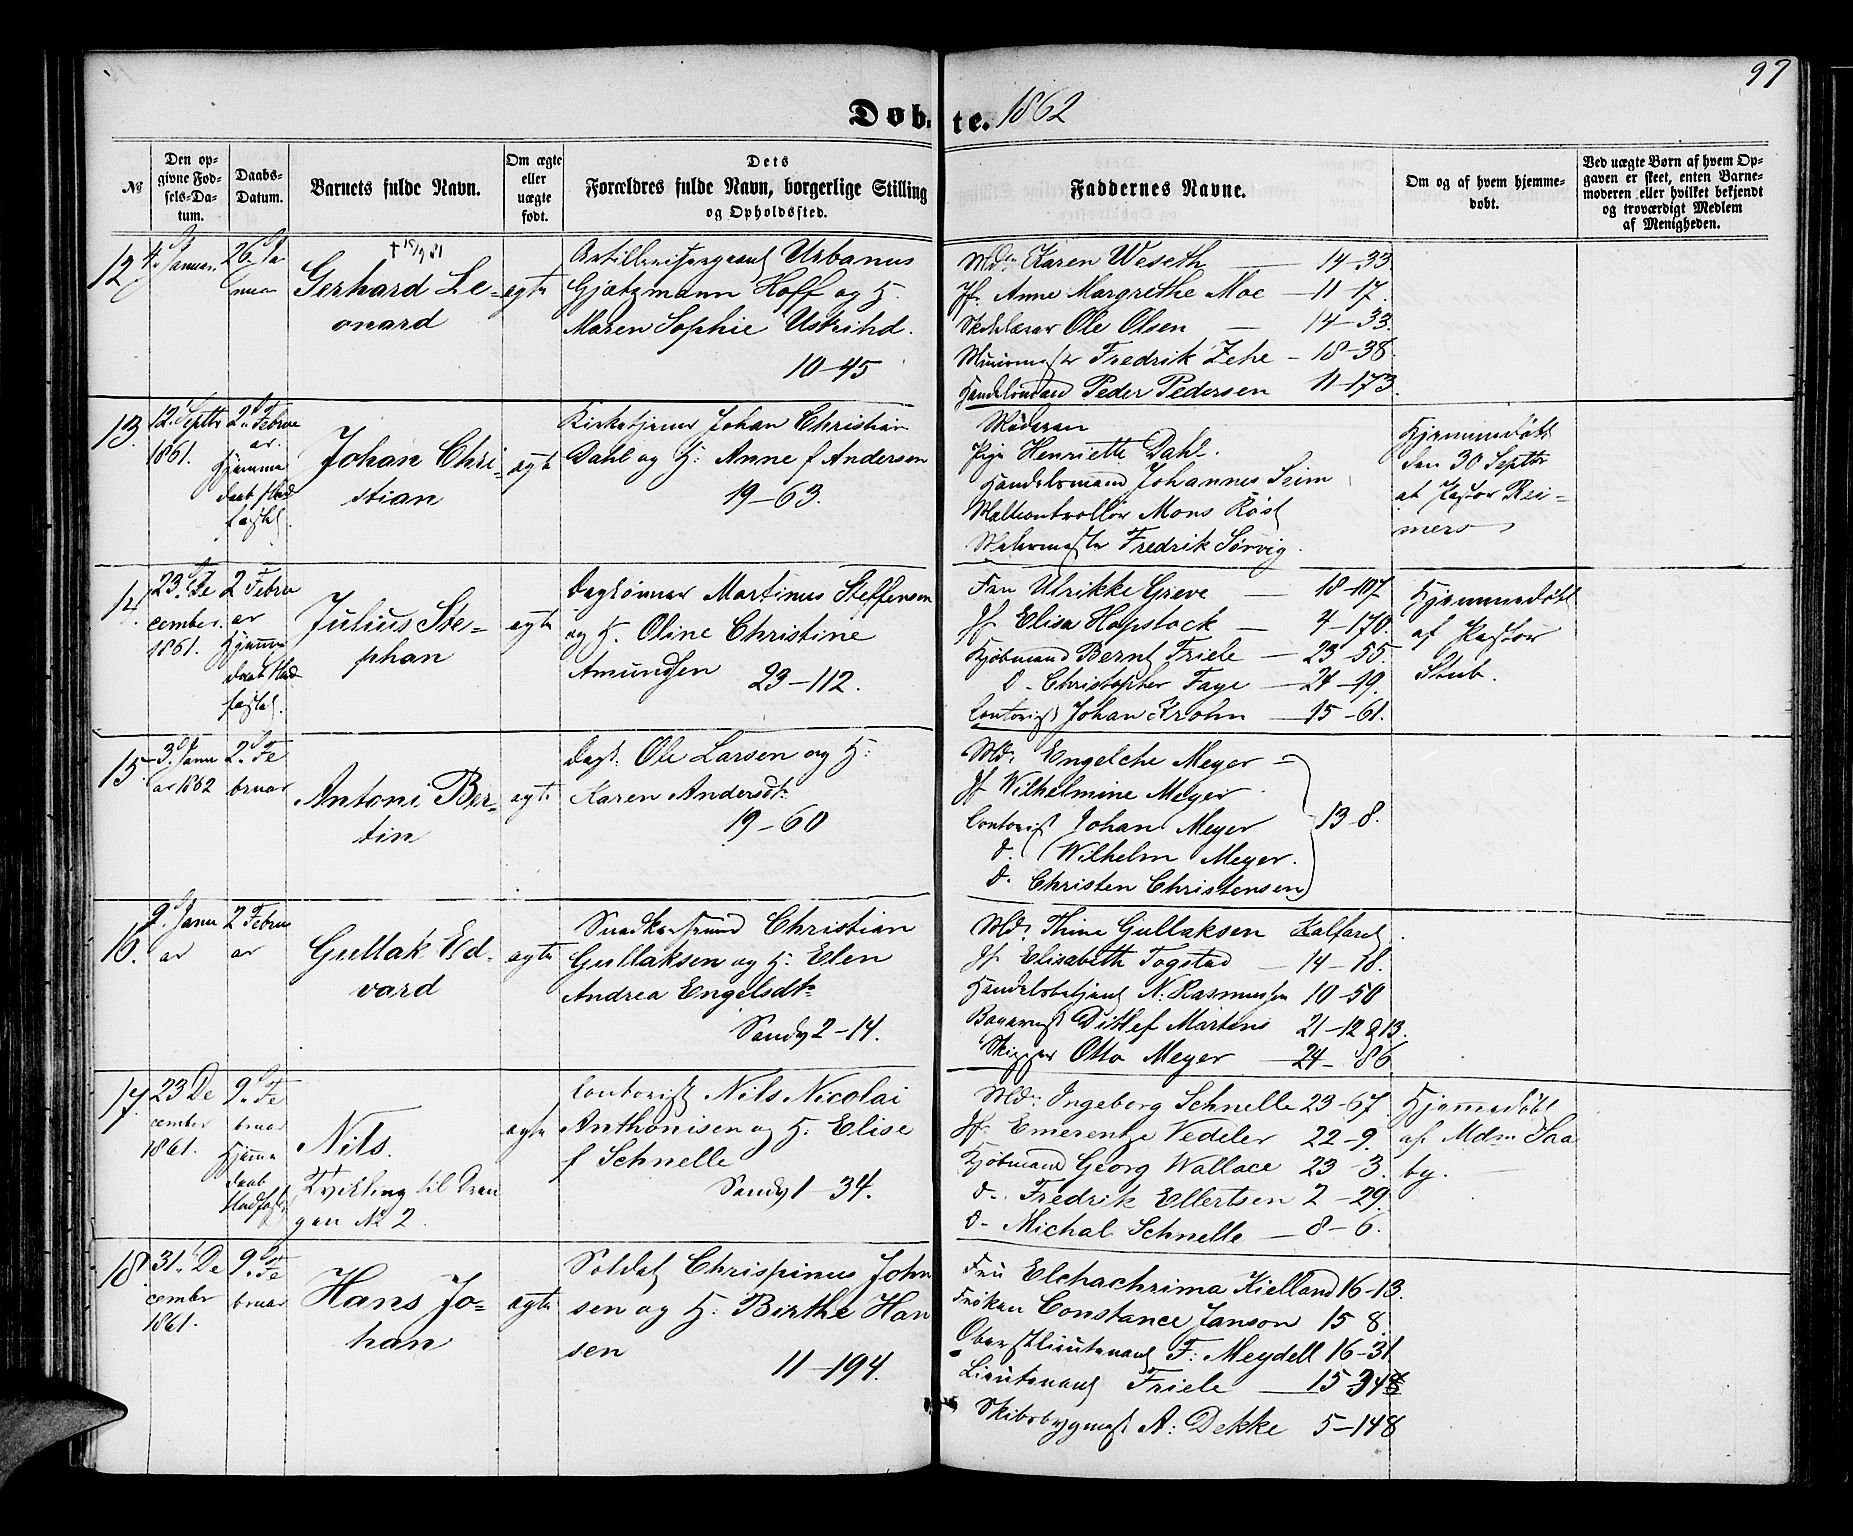 97
Døbte. 1862
№
Den opgivne Fødsels-Datum.
Daabs-Datum.
Barnets fulde Navn.
Om ægte eller uægte født.
Dets Forældres fulde Navn, borgerlige Stilling og Opholdssted.
Faddernes Navne.
Om og af hvem hjemmedøbt.
Ved uægte Børn af hvem Opgaven er skeet, enten Barnemoderen eller hvilket bekjendt og troværdigt Medlem af Menigheden.
12.
4. Januar.
26 Ja
nuar
Gerhard Le-
onard
ægte
Artillerisergeant Urbanus
Gjatzmann Hoff og H.
Maren Sophie
10-45
Md. Karen Weseth 14-33
Jf. Anne Margrethe Moe 11-17.
Ole Olsen 14-33.
Fredrik Zehe 18-38.
Handelsmand Peder Pedersen 11-173
13.
12. Septbr
1861.
2. Febru
ar.
Hjemme
daab stad
fæstet.
Johan Chri-
stian
ægte
Kirketjener Johan Christian
Dahl og H. Anne f Andersen
19-63.
Moderen
Pige Henriette Dahl.
Handelsmand Johannes Seim
Mons Røst
Malermester Fredrik Sørvig.
Hjemmedøbt
den 30 Septbr
af Pastor Rei-
mers
14.
23. De
cember.
1861.
2 Febru
ar
Hjemme
daab stad
fæstet.
Julius Ste-
phan
ægte
Daglønner Martinus Steffensen
og H. Oline Christine
Amundsen 23-112.
Fru Ulrikke Greve 18-107
Jf Elisa Hopstock 4-170.
Kjøbmand Bernt Friele 23-55.
d. Christopher Faye 24-49.
Contorist Johan Krohn 15-61.
Hjemmedøbt
af Pastor
Stub.
15.
3. Janu
ar 1862
2. Fe
bruar
Antoni Ber-
tin
ægte
Dagl. Ole Larsen og H.
Karen Andersdt.
19-60
Md. Engelche Meyer
Jf Wilhelmine Meyer.
Contorist Johan Meyer 13-8.
d. Wilhelm Meyer.
d. Christen Christensen
16.
9. Janu
ar
2 Febru
ar
Gullak Ed-
vard
ægte
Snedkersvend Christian
Gullaksen og H. Elen
Andrea Engelsdt.
Sandv 2-14.
Md. Thine Gullaksen Kalfaret.
Jf Elisabeth Togstad 14-18.
Handelsbetjent N. Rasmussen 10-50
Bagermst Ditlef Martens 21-12 & 13.
Skipper Otto Meyer 24-86
17.
23 De
cember
1861.
9. Fe
bruar
Hjemme
daab
stadfæst
Nils.
Tvilling til Dren
gen № 2.
ægte
Contorist Nils Nicolai
Anthonisen og H. Elise
f Schnelle
Sandv 1-34.
Md. Ingeborg Schnelle 23-67.
Jf. Emerentze Vedeler 22-9.
Kjøbmand Georg Wallace 23-3.
d. Fredrik Ellertsen 2-29.
d. Michal Schnelle 8-6.
Hjemmedøbt
af Mdm Saa
by.
18.
31. De
cember
1861.
9. Fe
bruar
Hans Jo-
han
ægte
Soldat Chrispinus John
sen og H. Birthe Han
sen
11-194.
Fru Kielland 16-13.
Frøken Constance Janson 15 8.
Oberstlieutenant F. Meydell 16-31
Lieutenant Friele
Skibsbygmest A. Dekke 5-148